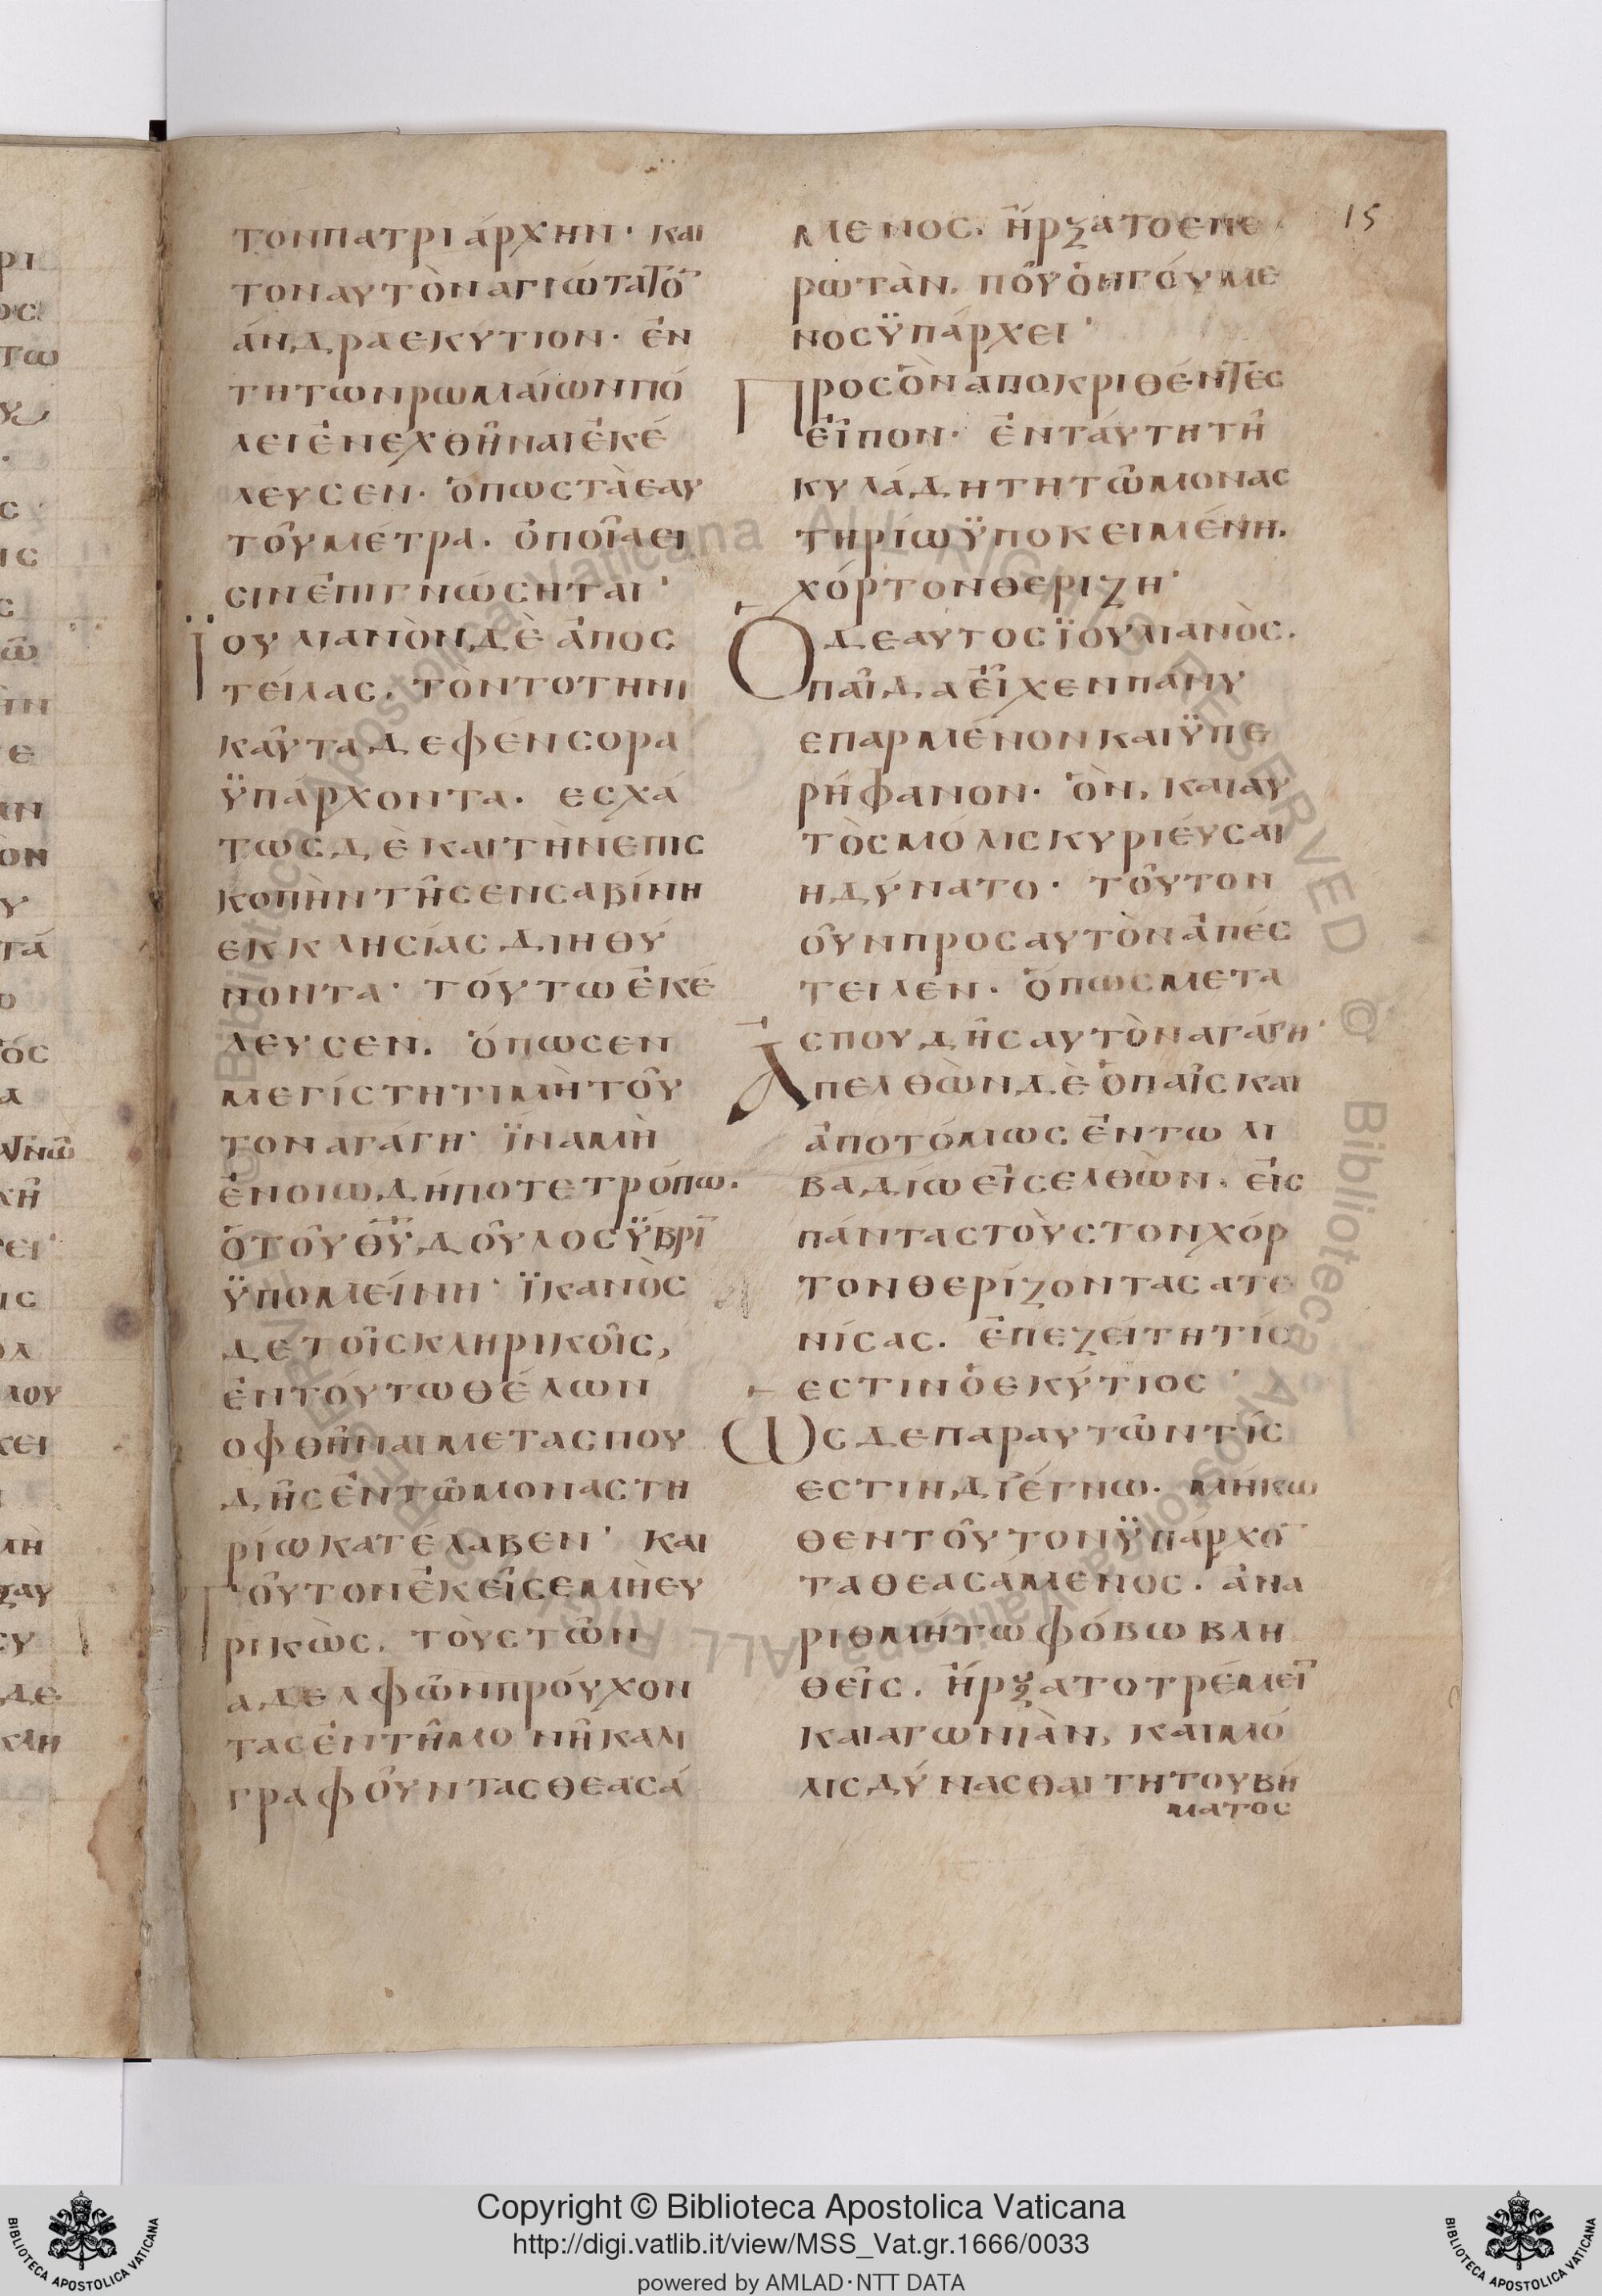 τονπατριάρχην· και
τοναυτὸναγιώτατο̅
άνδραεκύτιον· ἐν
τητωνρωμαίωνπό
λειἐνεχθῆναιἐκέ
λευσεν· ὅπωςτὰεαυ
τοῦμέτρα. ὁποῖαει
σινἐπιγνώσηται·
ϊουλιανὸνδὲ ἀπος
τείλας. τὸντοτηνι
καῦταδεφένσορα
ϋπάρχοντα. εσχά
τωςδὲκαιτὴνεπισ
κοπὴντῆςενσαβίνη
εκκλησίαςδιηθύ
νοντα· τούτωἐκέ
λευσεν. ὅπωςεν
μεγίστητιμὴτοῦ
τοναγάγη· ϊναμὴ
ἐνοιωδήποτετρόπω.
ὁτοῦθ̅υ̅δοῦλοςϋβρι̅
ϋπομείνη· ϊκανὸς
δετοῖςκληρικοῖς,
ἐντούτωθέλων
οφθῆναιμετασπου
δῆςἐντῶμοναστη
ρίωκατέλαβεν· και
τοῦτονἐκεῖσεμὴευ
ρικὼς. τοὺςτῶν
αδελφῶνπρούχον
ταςἐντῆμονῆκαλι
γραφοῦνταςθεασά
μενος. ἤρξατοεπε
ρωτὰν. ποῦὁηγούμε
νοςϋπάρχει·
Προςὃναποκριθέντες
εἶπον· ἐνταύτητῆ
κυλάδητητῶμονασ
τηρίωϋποκειμένη.
χόρτονθερίζη·
Οδεαυτοςϊουλιανὸς.
παῖδαεἶχενπανυ
επαρμένονκαιϋπε
ρήφανον· ὃν, καιαυ
τὸςμόλιςκυριέυσαι
ηδύνατο· τοῦτον
οῦνπροςαυτὸνἀπέσ
τειλεν. ὅπωςμετα
σπουδῆςαυτὸναγάγη·
Ἀπελθὼνδὲὁπαῖςκαι
ἀποτόμωςἐντωλι
βαδίωεἰσελθὼν. εἰς
πάνταςτοὺςτονχόρ
τονθερίζονταςατε
νίσας. ἐπεζείτητίς
εστινὁεκύτιος·
Ωςδεπαραυτῶντίς
εστινδιέγνω. μήκω
θεντοῦτονϋπάρχο̅
ταθεασάμενος. ἀνα
ριθμήτωφόβωβλη
θεῖς. ἤρξατοτρέμει̅
καιαγωνιὰν, καιμό
λιςδύνασθαιτητουβή
ματος
15
Copyright © Biblioteca Apostolica Vaticana
http://digi.vatlib.it/view/MSS_Vat.gr.1666/0033
powered by AMLAD·NTT DATA
BIBLIOTECA APOSTOLICA VATICANA
BIBLIOTECA APOSTOLICA VATICANA